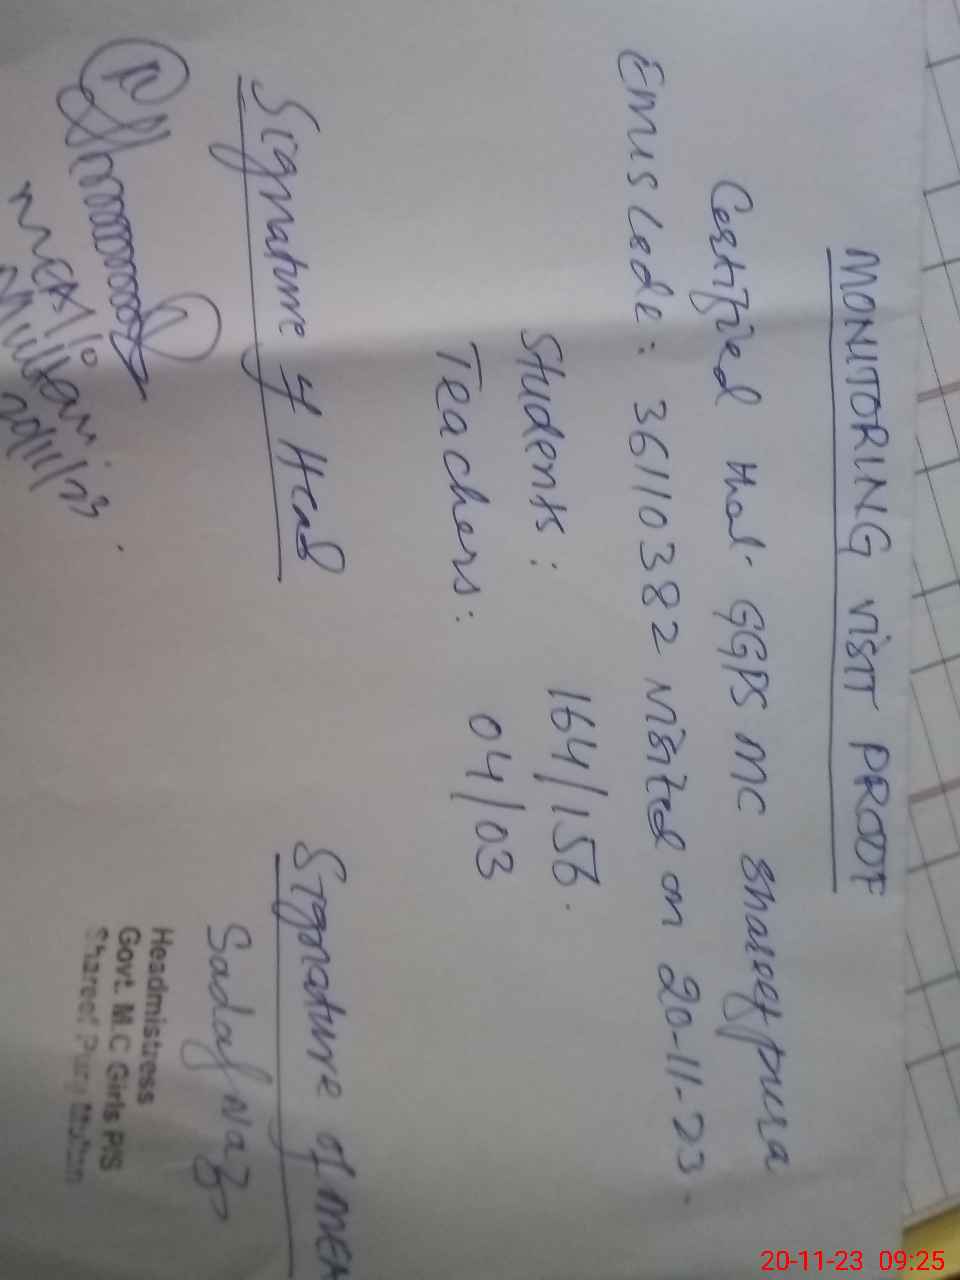 MONITORING VISIT PROOF
Certified that GGPS MC Shareefpura
Emis Code: 36110382 visited on 20-11-23.
Students: 164/156.
Teachers: 04/03
Signature of Head
Signature of MEA
Sadaf Naz
Headmistress
Govt. M.C Girls P/S
Shareef Pura, Multan
MEA/10
Multan.
20/11/23
20-11-23 09:25